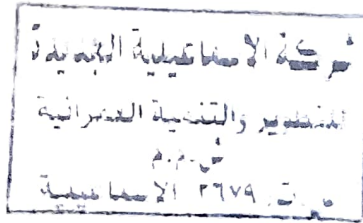 شركة الاسماعيلية الجديدة
للتطوير والتنمية العمرانية
ش.م.م
س.ت. ٢٦٧٩ الاسماعيلية